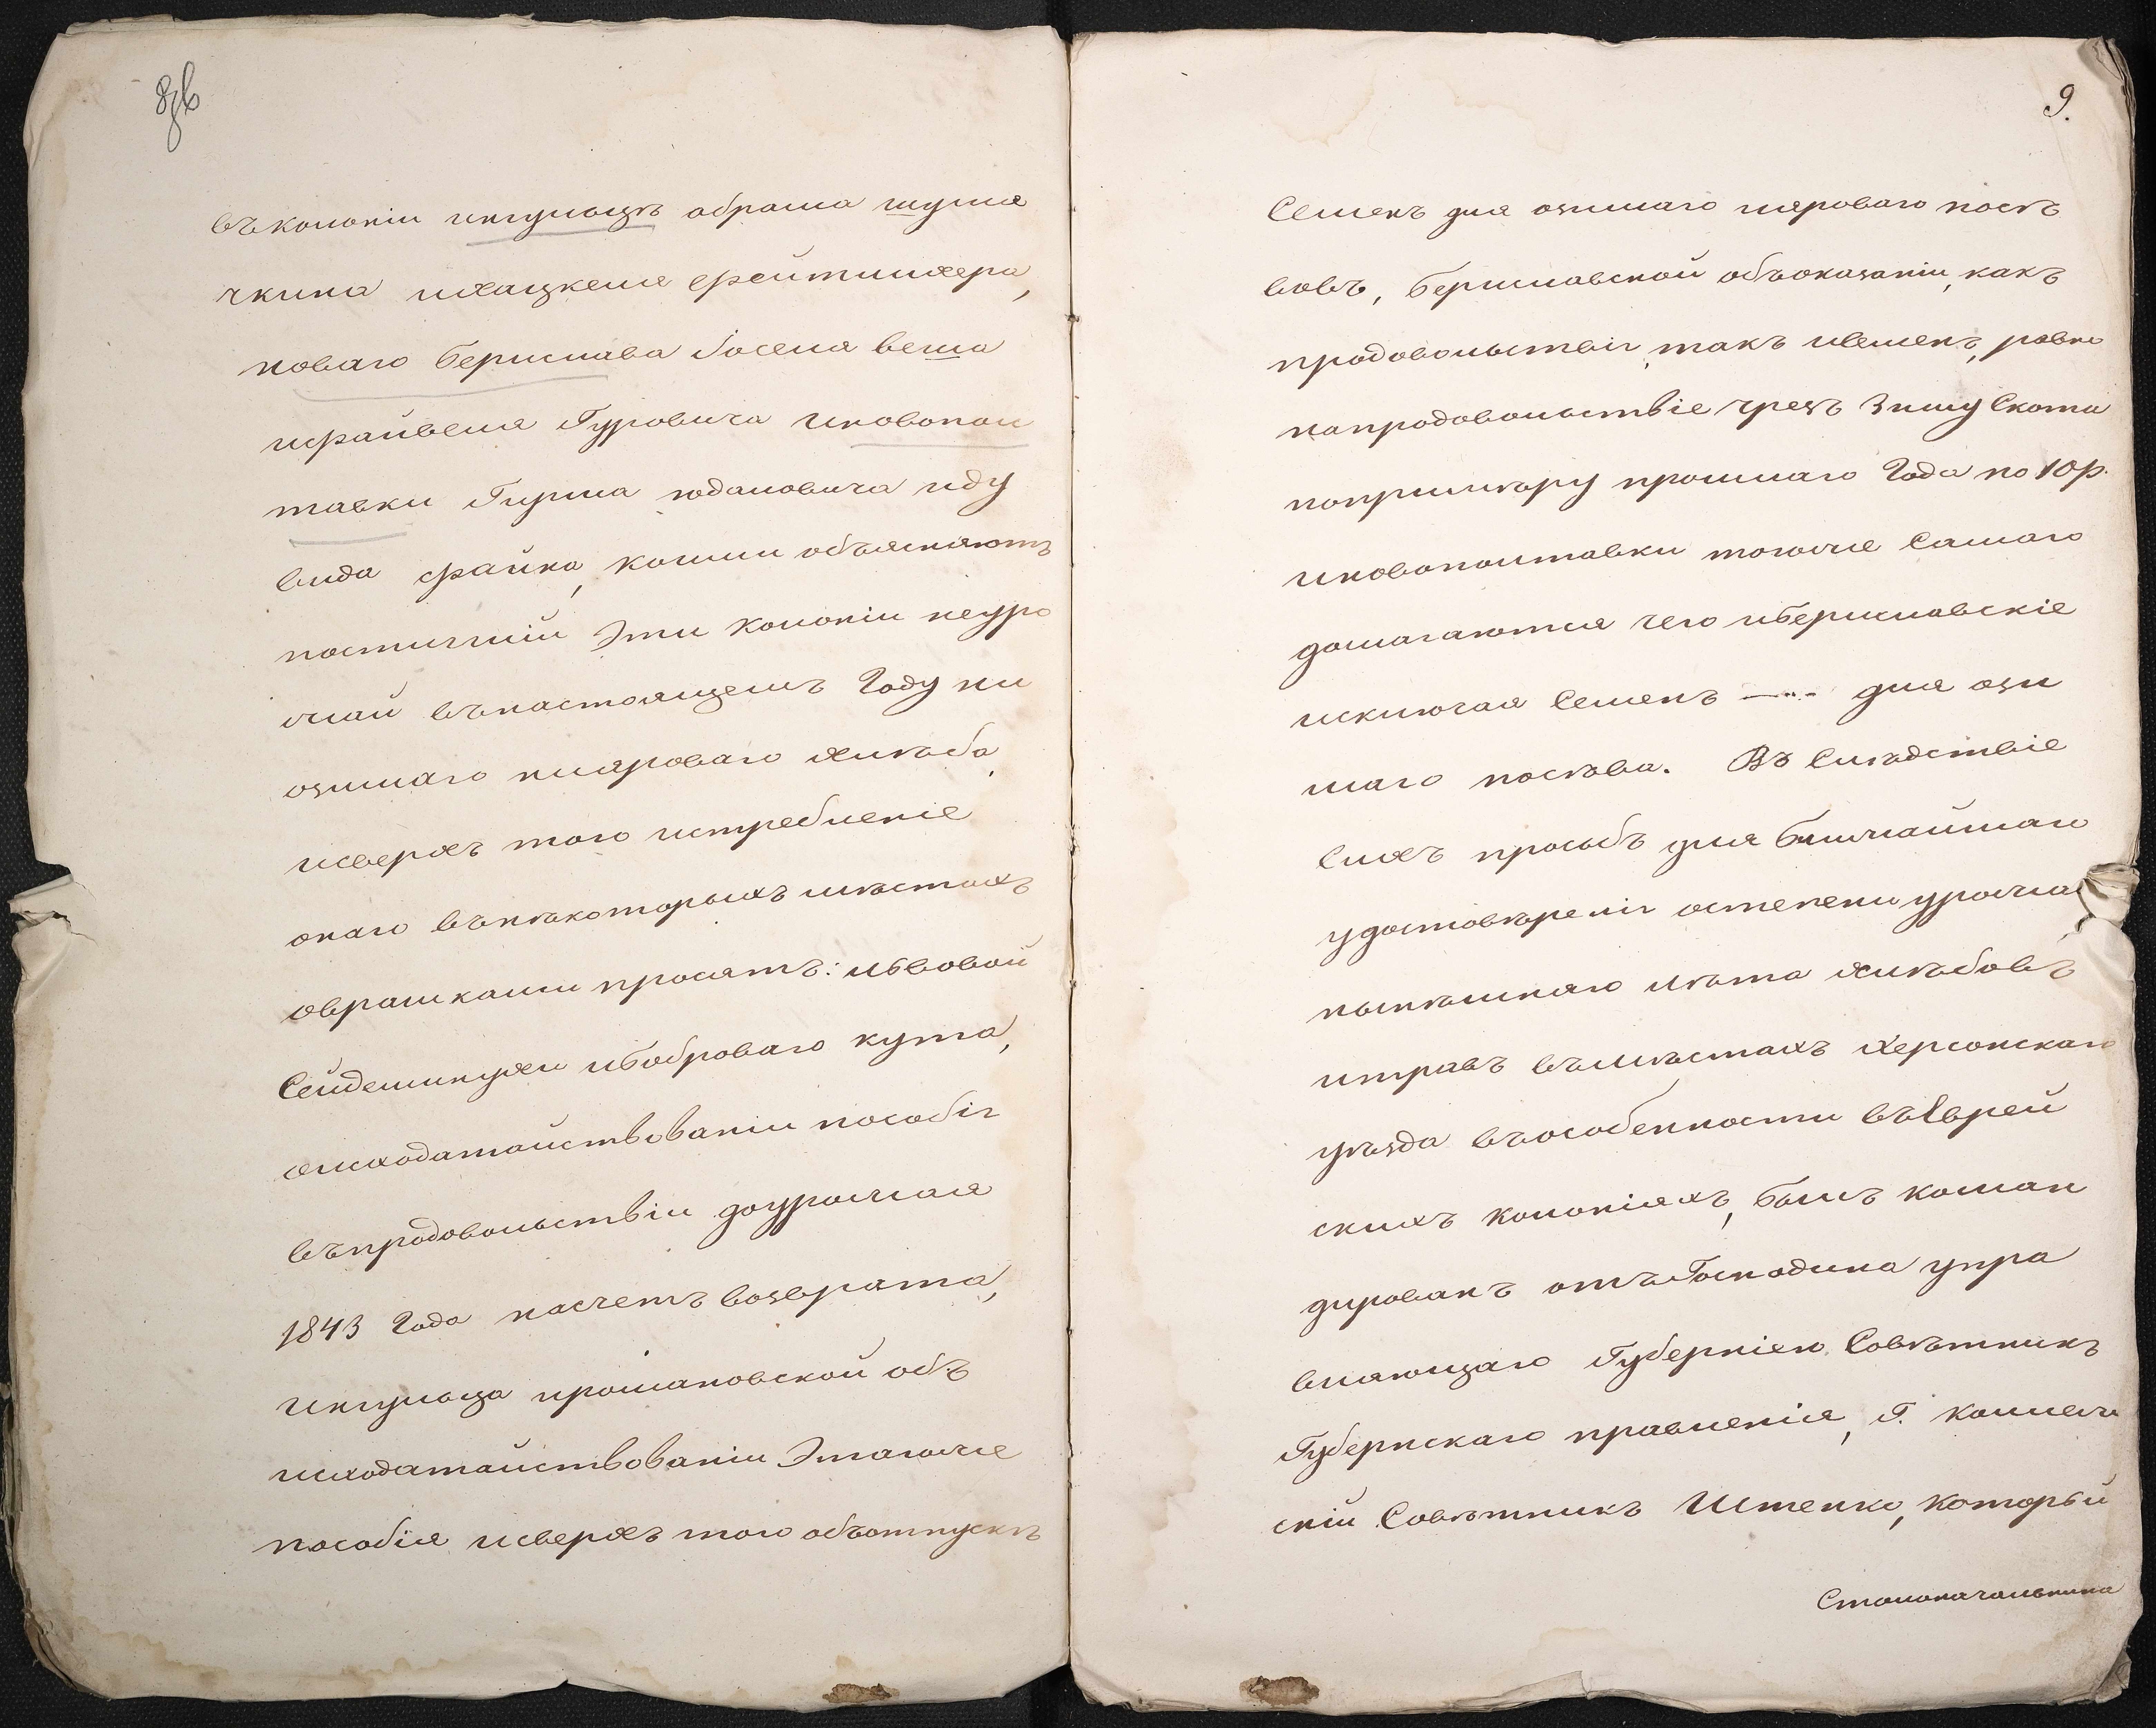 8 в
въ колоніи ингульцѣ абрама шуля
чкина ихацкеля фейтильхера,
новаго Берислава іоселя велю
израйвеля Гуровича и новопол
тавки Гирша юдановича иду
вида файна, коими объясняютъ
постигшій эти колоніи неуро
жай въ настоящемъ году ни
озимаго ни яроваго хлѣба,
и сверхъ того истребленіе
онаго въ нѣкоторыхъ мѣстахъ
оврашками просятъ: изъ вовой
Сейдеминухи и Боброваго кута,
о исходатайствованіи пособіи
въ продовольствіи до урожая
1843 года насчетъ возврата,
ингульца и романовской объ
исходатайствованіи этогоже
пособія и сверхъ того объ отпускѣ
9.
Семенъ для озимаго и яроваго посѣ
вовъ, Бериславской объ оказаніи, какъ
продовольствіи, такъ и семенъ, равно
на продовольствіе чрезъ Зиму Скота
по примѣру прошлаго Года по 10 р.
и новополтавки тогоже самаго
домогаются чего и Бериславскіе
исключая Семенъ —„— для ози
маго посѣва. Въ Слѣдствіе
Сихъ прозьбъ для Ближайшаго
удостовѣреніи о степени урожая
нынѣшняго лѣта хлѣбовъ
и травъ въ мѣстахъ Херсонскаго
уѣзда въ особенности въ Еврей
скихъ колоніяхъ, былъ коман
дированъ отъ Господина упра
вляющаго Губерніею Совѣтникъ
Губернскаго правленія, Г. коллеж
скій Совѣтникъ Штенко, который
Столоначальника